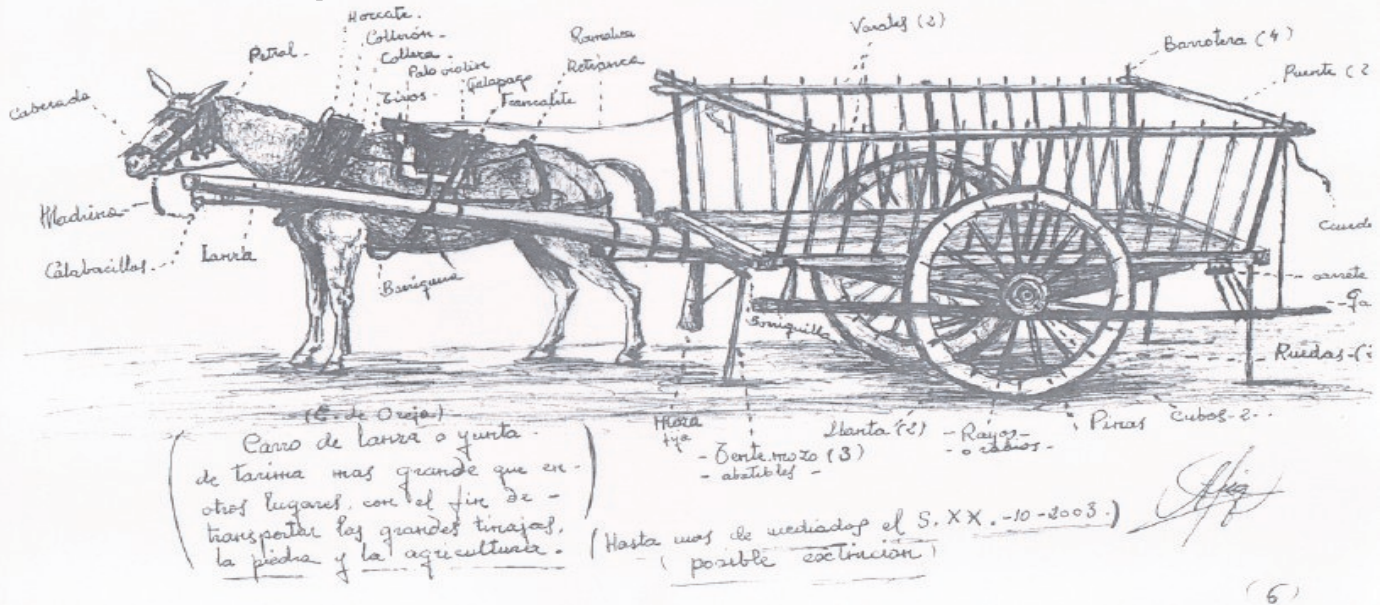 Horcate.
Collerón -
Collera -
Petral -
Palo violin
Tiros -
Galapago
Trancafite
Ramalera
Retranca
Varales (2)
Barrotera (4)
Puente (2
Cabezada
Madrina
Calabacillos -
Lanza
Barriguera
Borriquilla
Ruedas-(
(C. de Oreja)
Carro de lanza o yunta -
de tarima mas grande que en -
otros lugares, con el fin de -
transportar las grandes tinajas,
la piedra y la agricultura -
fija
- Tente mozo (3)
- abatibles -
Llanta (2)
- Rayos -
- o radios -
Pinas
Cubos-2--
(Hasta mas de mediados el S. XX. -10-2003.)
( posible extinción )
(6)